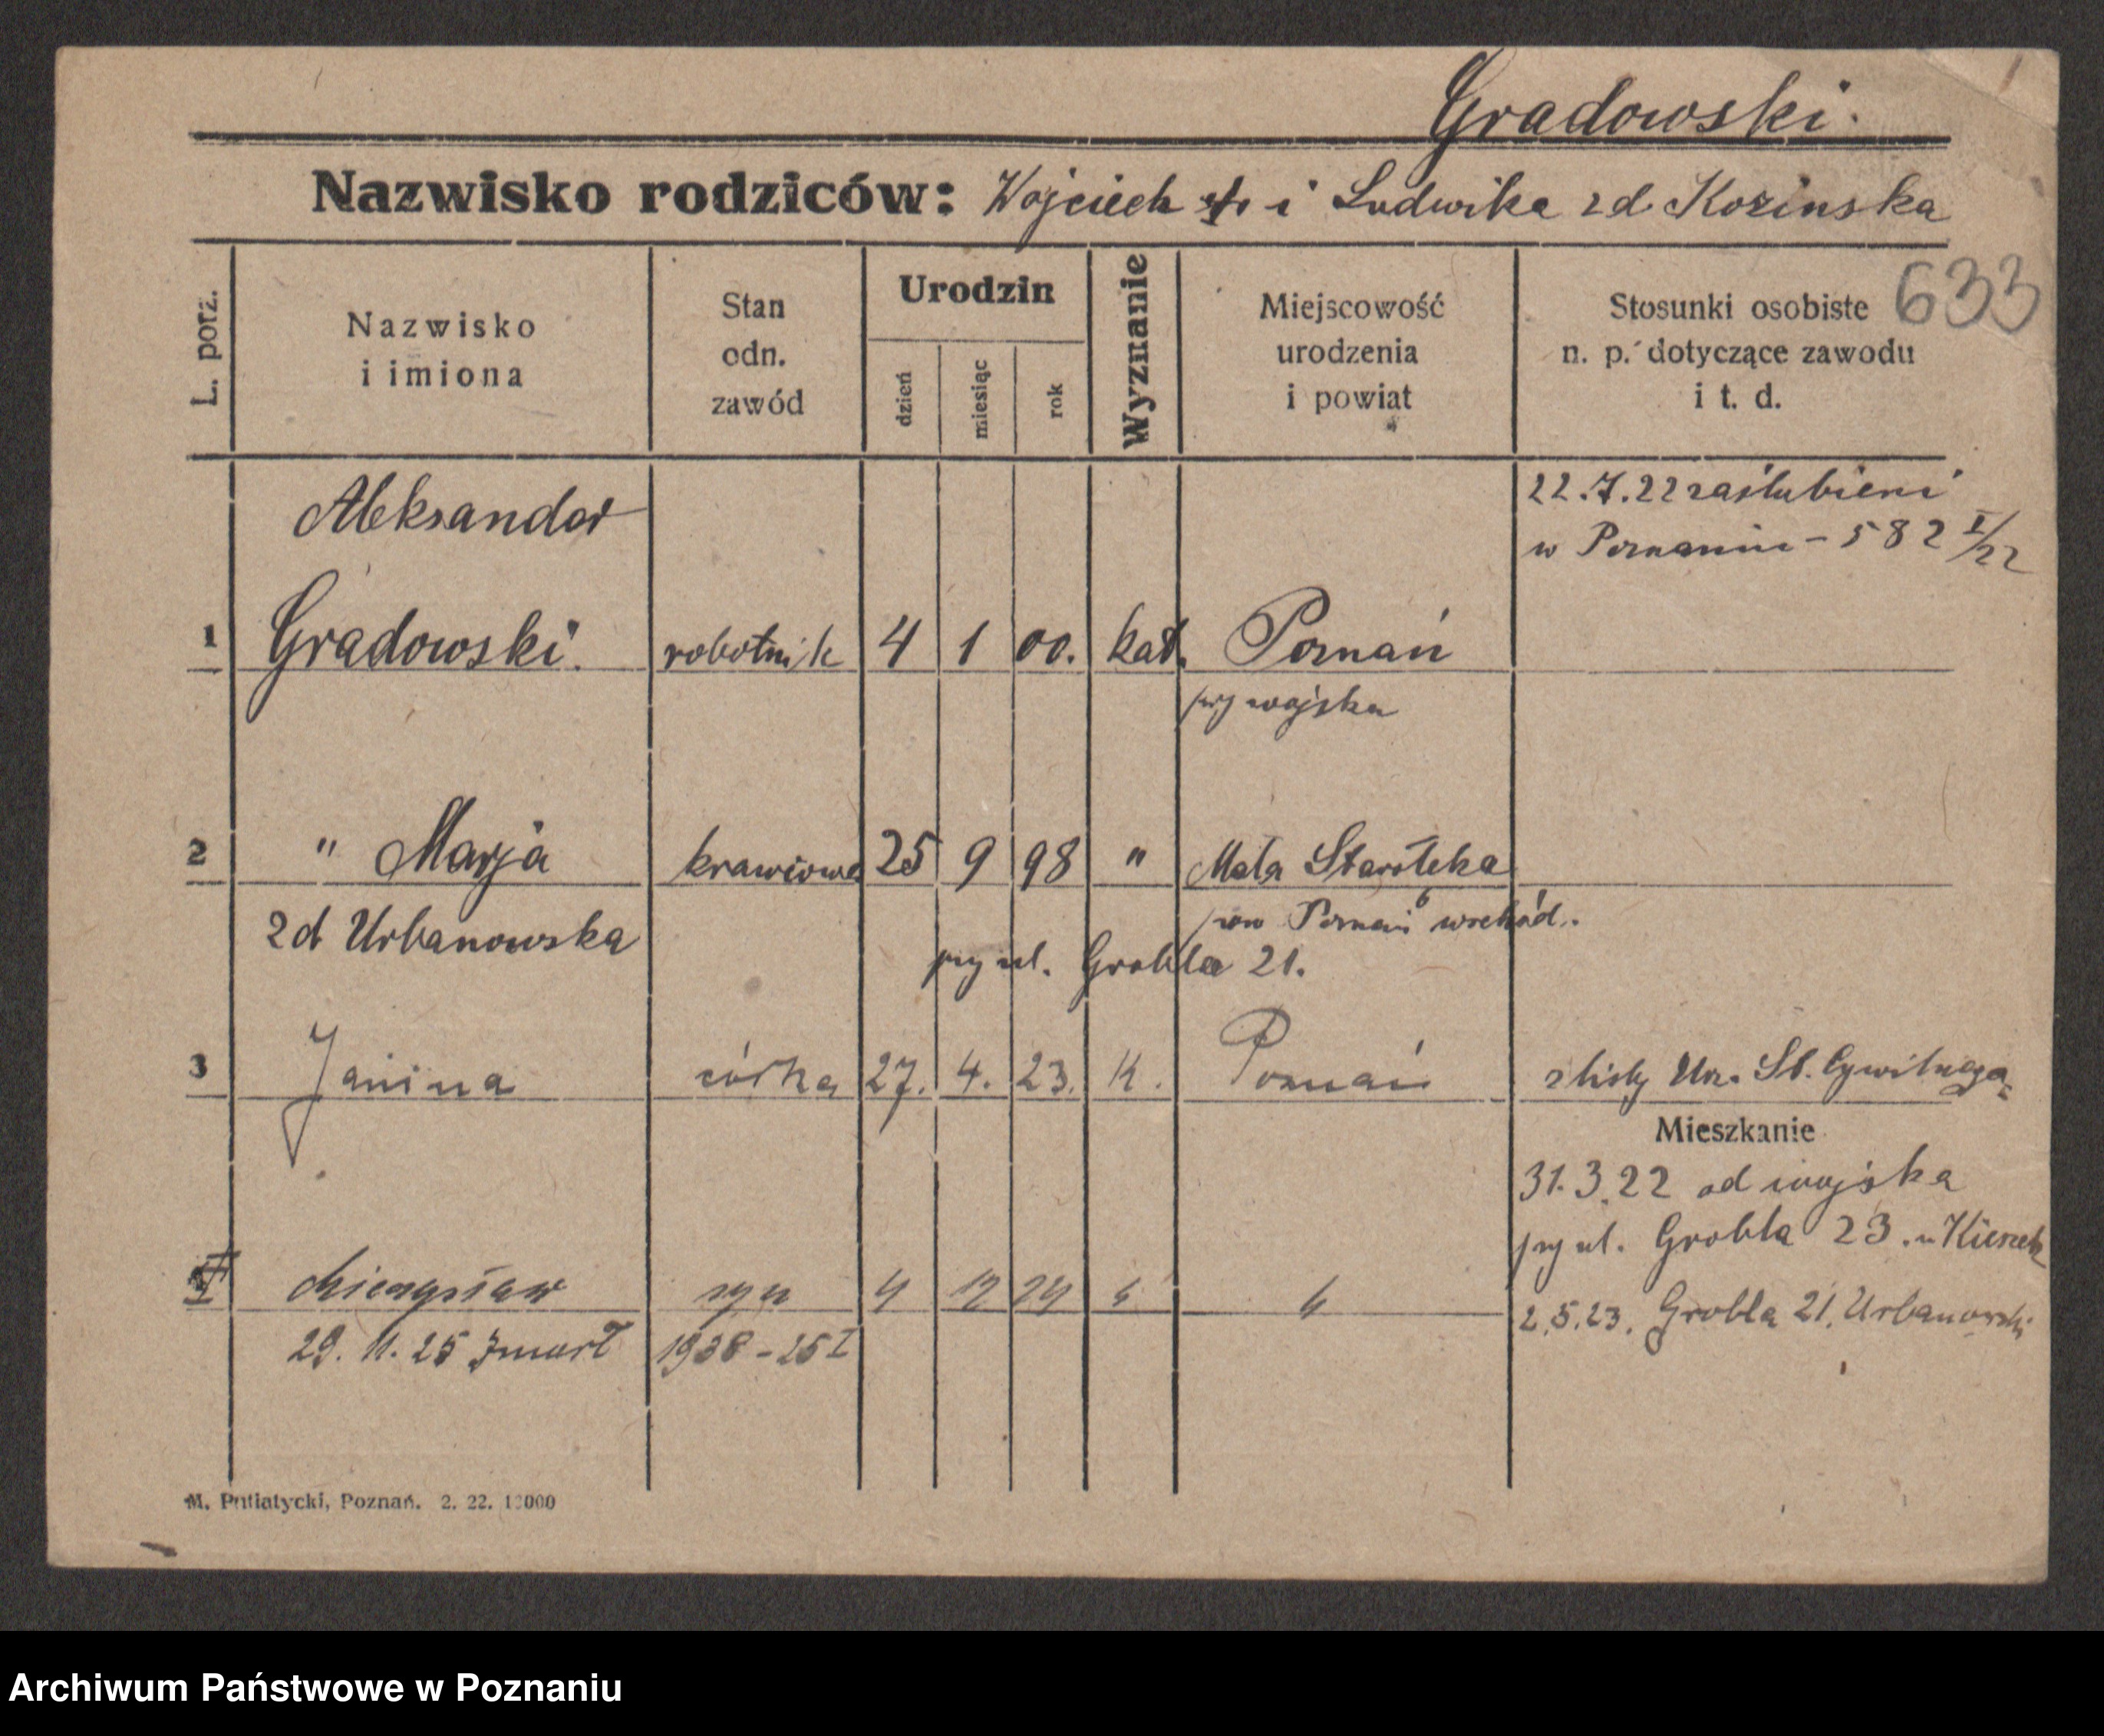 Gradowski.
Nazwisko rodziców: Wojciech i Ludwika zd Kozinska
633
L. porz.
Nazwisko i imiona
Stan odn. zawód
Urodzin
dzień
miesiąc
rok
Wyznanie
Miejscowość urodzenia i powiat
Stosunki osobiste n. p. dotyczące zawodu i t. d.
22.7.22 zaślubieni
w Poznaniu - 582 I/22
Aleksander
1 Gradowski. robotnik 4 1 00. kat. Poznań
przy wojsku
2 " Marja krawcowa 25 9 98 " Mała Starołeka
zd Urbanowska
pow Poznań wschód.
przy ul. Grobla 21.
3 Janina córka 27. 4. 23. K. Poznań z listy Urz. St. Cywilnego
Mieszkanie
31.3.22 od wojska
przy ul. Grobla 23. u
Mieczysław syn 4 12 24
2.5.23. Grobla 21. Urbanowski
29. 11. 25 Zmarł 1938 - 25 I
M. Putiatycki, Poznań. 2. 22. 10000
Archiwum Państwowe w Poznaniu